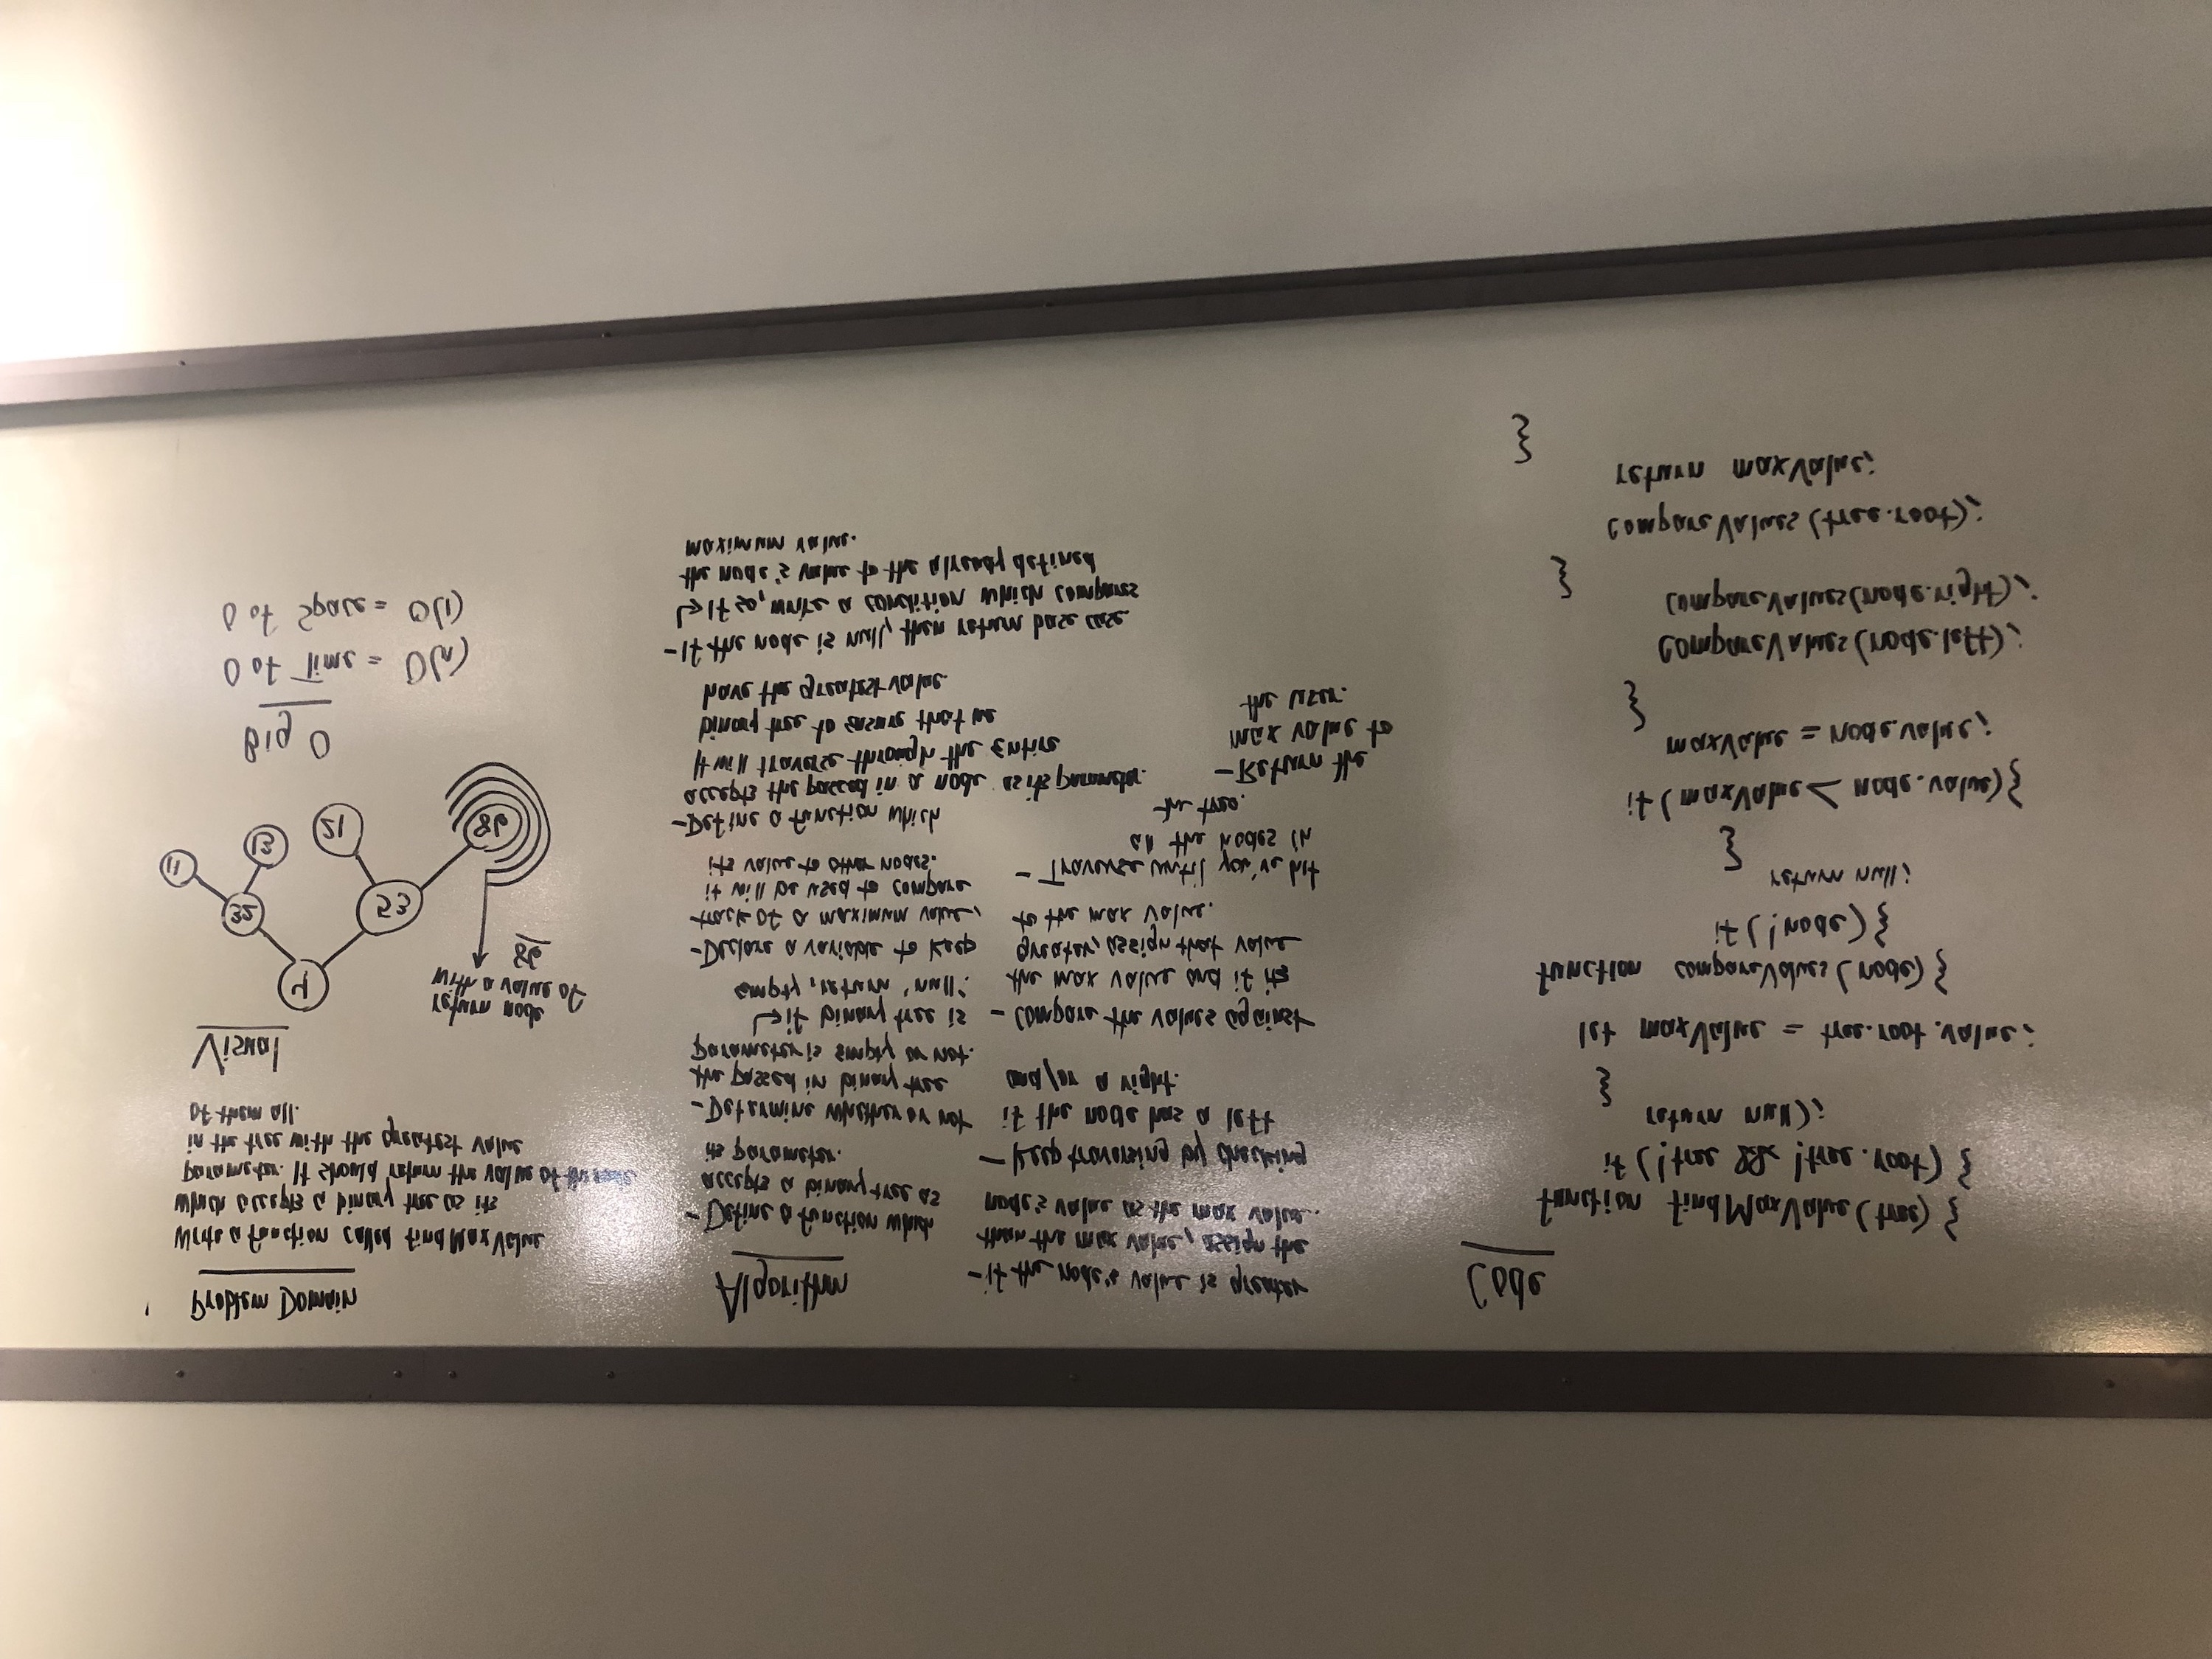 Problem Domain
Write a function called findMaxValue
which accepts a binary tree as its
parameter. It should return the value of the node
in the tree with the greatest value
of them all.
Visual
4
32
53
11
13
21
86
return node
with a value of
86
Big O
O of Time = O(n)
O of Space = O(1)
Algorithm
- Define a function which
accepts a binary tree as
its parameter.
- Determine whether or not
the passed in binary tree
parameter is empty or not.
↳ if binary tree is
empty, return 'null'.
- Declare a variable to keep
track of a maximum value,
it will be used to compare
its value to other nodes.
- Define a function which
accepts the passed in a node as its parameter.
It will traverse through the entire
binary tree to ensure that we
have the greatest value.
- If the node is null, then return base case
↳ If so, write a condition which compares
the node's value to the already defined
maximum value.
- if the node's value is greater
than the max value, assign the
node's value as the max value.
- Keep traversing by checking
if the node has a left
and/or a right.
- Compare the values against
the max value and if its
greater, assign that value
to the max value.
- Traverse until you've hit
all the nodes in
the tree.
- Return the
max value to
the user.
Code
function findMaxValue(tree) {
if (!tree && !tree.root) {
return null;
}
let maxValue = tree.root.value;
function compareValues(node) {
if (!node) {
return null;
}
if (maxValue < node.value) {
maxValue = node.value;
}
compareValues(node.left);
compareValues(node.right);
}
compareValues(tree.root);
return maxValue;
}